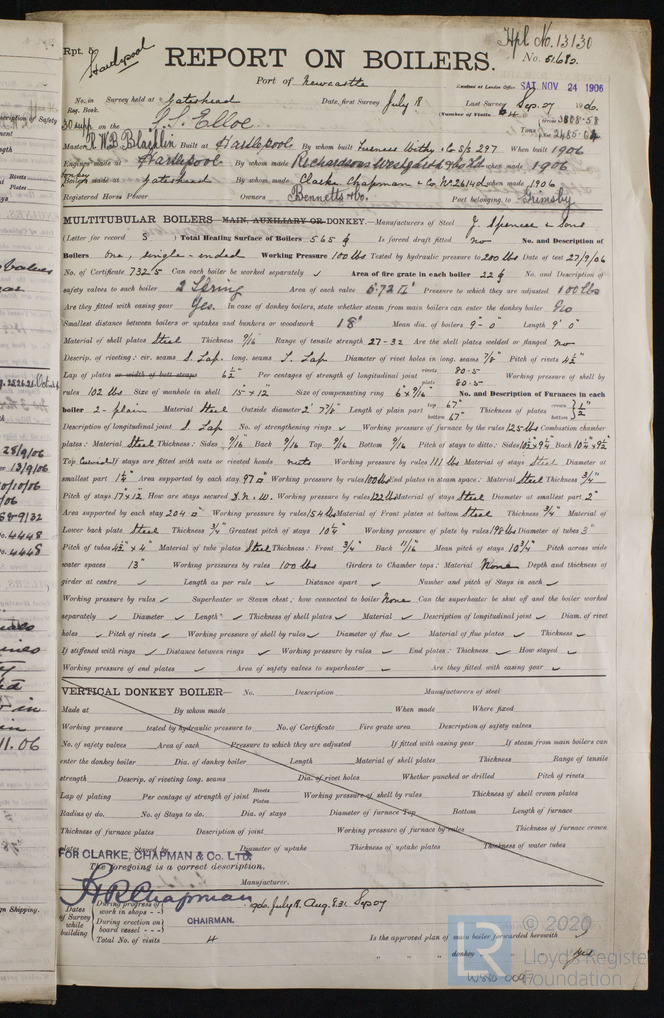 Rpt. 5
Hartlepool
Hpl No. 13130
REPORT ON BOILERS.
No. 51680.
Port of Newcastle
Received at London Office SAT. NOV 24 1906
No. in Survey held at Gateshead Date, first Survey July 18 Last Survey Sep. 07 1906.
Reg. Book.
(Number of Visits 4)
30 supp on the S.S. Elloe Tons Gross 3808.58
Net 2485.64
Master R.W.B. Built at Hartlepool By whom built Furness Withy & Co S/P 297 When built 1906
Engines made at Hartlepool By whom made Richardsons Westgarth & Co Ld when made 1906
Donkey
Boilers made at Gateshead By whom made Clarke Chapman & Co. No 2614 when made 1906
Registered Horse Power Owners Bennetts & Co. Port belonging to Grimsby
MULTITUBULAR BOILERS MAIN, AUXILIARY OR DONKEY.—Manufacturers of Steel J. Spencer & Sons
(Letter for record S) Total Heating Surface of Boilers 565 Is forced draft fitted no No. and Description of
Boilers One, single-ended Working Pressure 100 lbs Tested by hydraulic pressure to 200 lbs Date of test 27/9/06
No. of Certificate 7325 Can each boiler be worked separately ✓ Area of fire grate in each boiler 22 No. and Description of
safety valves to each boiler 2 Spring Area of each valve 5.72 Pressure to which they are adjusted 100 lbs
Are they fitted with easing gear Yes. In case of donkey boilers, state whether steam from main boilers can enter the donkey boiler No
Smallest distance between boilers or uptakes and bunkers or woodwork 18" Mean dia. of boilers 9'-0" Length 9' 0"
Material of shell plates Steel Thickness 9/16 Range of tensile strength 27-32 Are the shell plates welded or flanged no
Descrip. of riveting: cir. seams S. Lap long. seams T. Lap Diameter of rivet holes in long. seams 7/8" Pitch of rivets 4½"
Lap of plates or width of butt straps 6½" Per centages of strength of longitudinal joint rivets 80.5 Working pressure of shell by
plate 80.5
rules 102 lbs Size of manhole in shell 15" x 12" Size of compensating ring 6" x 9/16" No. and Description of Furnaces in each
boiler 2 - plain Material Steel Outside diameter 2' 7⅞" Length of plain part top 67" bottom 67" Thickness of plates crown bottom ½"
Description of longitudinal joint S. Lap No. of strengthening rings ✓ Working pressure of furnace by the rules 125 lbs Combustion chamber
plates: Material Steel Thickness: Sides 9/16 Back 9/16 Top 9/16 Bottom 9/16 Pitch of stays to ditto: Sides 10¾ x 9¼ Back 10¼ x 9½
Top Curved If stays are fitted with nuts or riveted heads nuts Working pressure by rules 111 lbs Material of stays Steel Diameter at
smallest part 1¼" Area supported by each stay 97 Working pressure by rules 100 lbs End plates in steam space: Material Steel Thickness ¾"
Pitch of stays 17 x 12 How are stays secured D.N.W. Working pressure by rules 122 lbs Material of stays Steel Diameter at smallest part 2"
Area supported by each stay 204 Working pressure by rules 154 lbs Material of Front plates at bottom Steel Thickness ¾" Material of
Lower back plate Steel Thickness ¾" Greatest pitch of stays 10¼" Working pressure of plate by rules 198 lbs Diameter of tubes 3"
Pitch of tubes 4½" x 4" Material of tube plates Steel Thickness: Front ¾" Back 11/16" Mean pitch of stays 10¾" Pitch across wide
water spaces 13" Working pressures by rules 100 lbs Girders to Chamber tops: Material None Depth and thickness of
girder at centre ✓ Length as per rule ✓ Distance apart ✓ Number and pitch of Stays in each ✓
Working pressure by rules ✓ Superheater or Steam chest; how connected to boiler None Can the superheater be shut off and the boiler worked
separately ✓ Diameter ✓ Length ✓ Thickness of shell plates ✓ Material ✓ Description of longitudinal joint ✓ Diam. of rivet
holes ✓ Pitch of rivets ✓ Working pressure of shell by rules ✓ Diameter of flue ✓ Material of flue plates ✓ Thickness ✓
If stiffened with rings ✓ Distance between rings ✓ Working pressure by rules ✓ End plates: Thickness ✓ How stayed ✓
Working pressure of end plates ✓ Area of safety valves to superheater ✓ Are they fitted with easing gear ✓
VERTICAL DONKEY BOILER— No. Description Manufacturers of steel
Made at By whom made When made Where fixed
Working pressure tested by hydraulic pressure to No. of Certificate Fire grate area Description of safety valves
No. of safety valves Area of each Pressure to which they are adjusted If fitted with easing gear If steam from main boilers can
enter the donkey boiler Dia. of donkey boiler Length Material of shell plates Thickness Range of tensile
strength Descrip. of riveting long. seams Dia. of rivet holes Whether punched or drilled Pitch of rivets
Lap of plating Per centage of strength of joint Rivets Plates Working pressure of shell by rules Thickness of shell crown plates
Radius of do. No. of Stays to do. Dia. of stays Diameter of furnace Top Bottom Length of furnace
Thickness of furnace plates Description of joint Working pressure of furnace by rules Thickness of furnace crown
plates Stayed by Diameter of uptake Thickness of uptake plates Thickness of water tubes
FOR CLARKE, CHAPMAN & Co. LTD.
The foregoing is a correct description,
H R Chapman Manufacturer.
CHAIRMAN.
Dates of Survey while building
During progress of work in shops - - 1906. July 18. Aug. 8. 31 Sep 07
During erection on board vessel - - -
Total No. of visits 4
Is the approved plan of main boiler forwarded herewith ✓
" " " donkey " " " yes
© 2020
LR
Lloyd's Register
Foundation
W580-0097